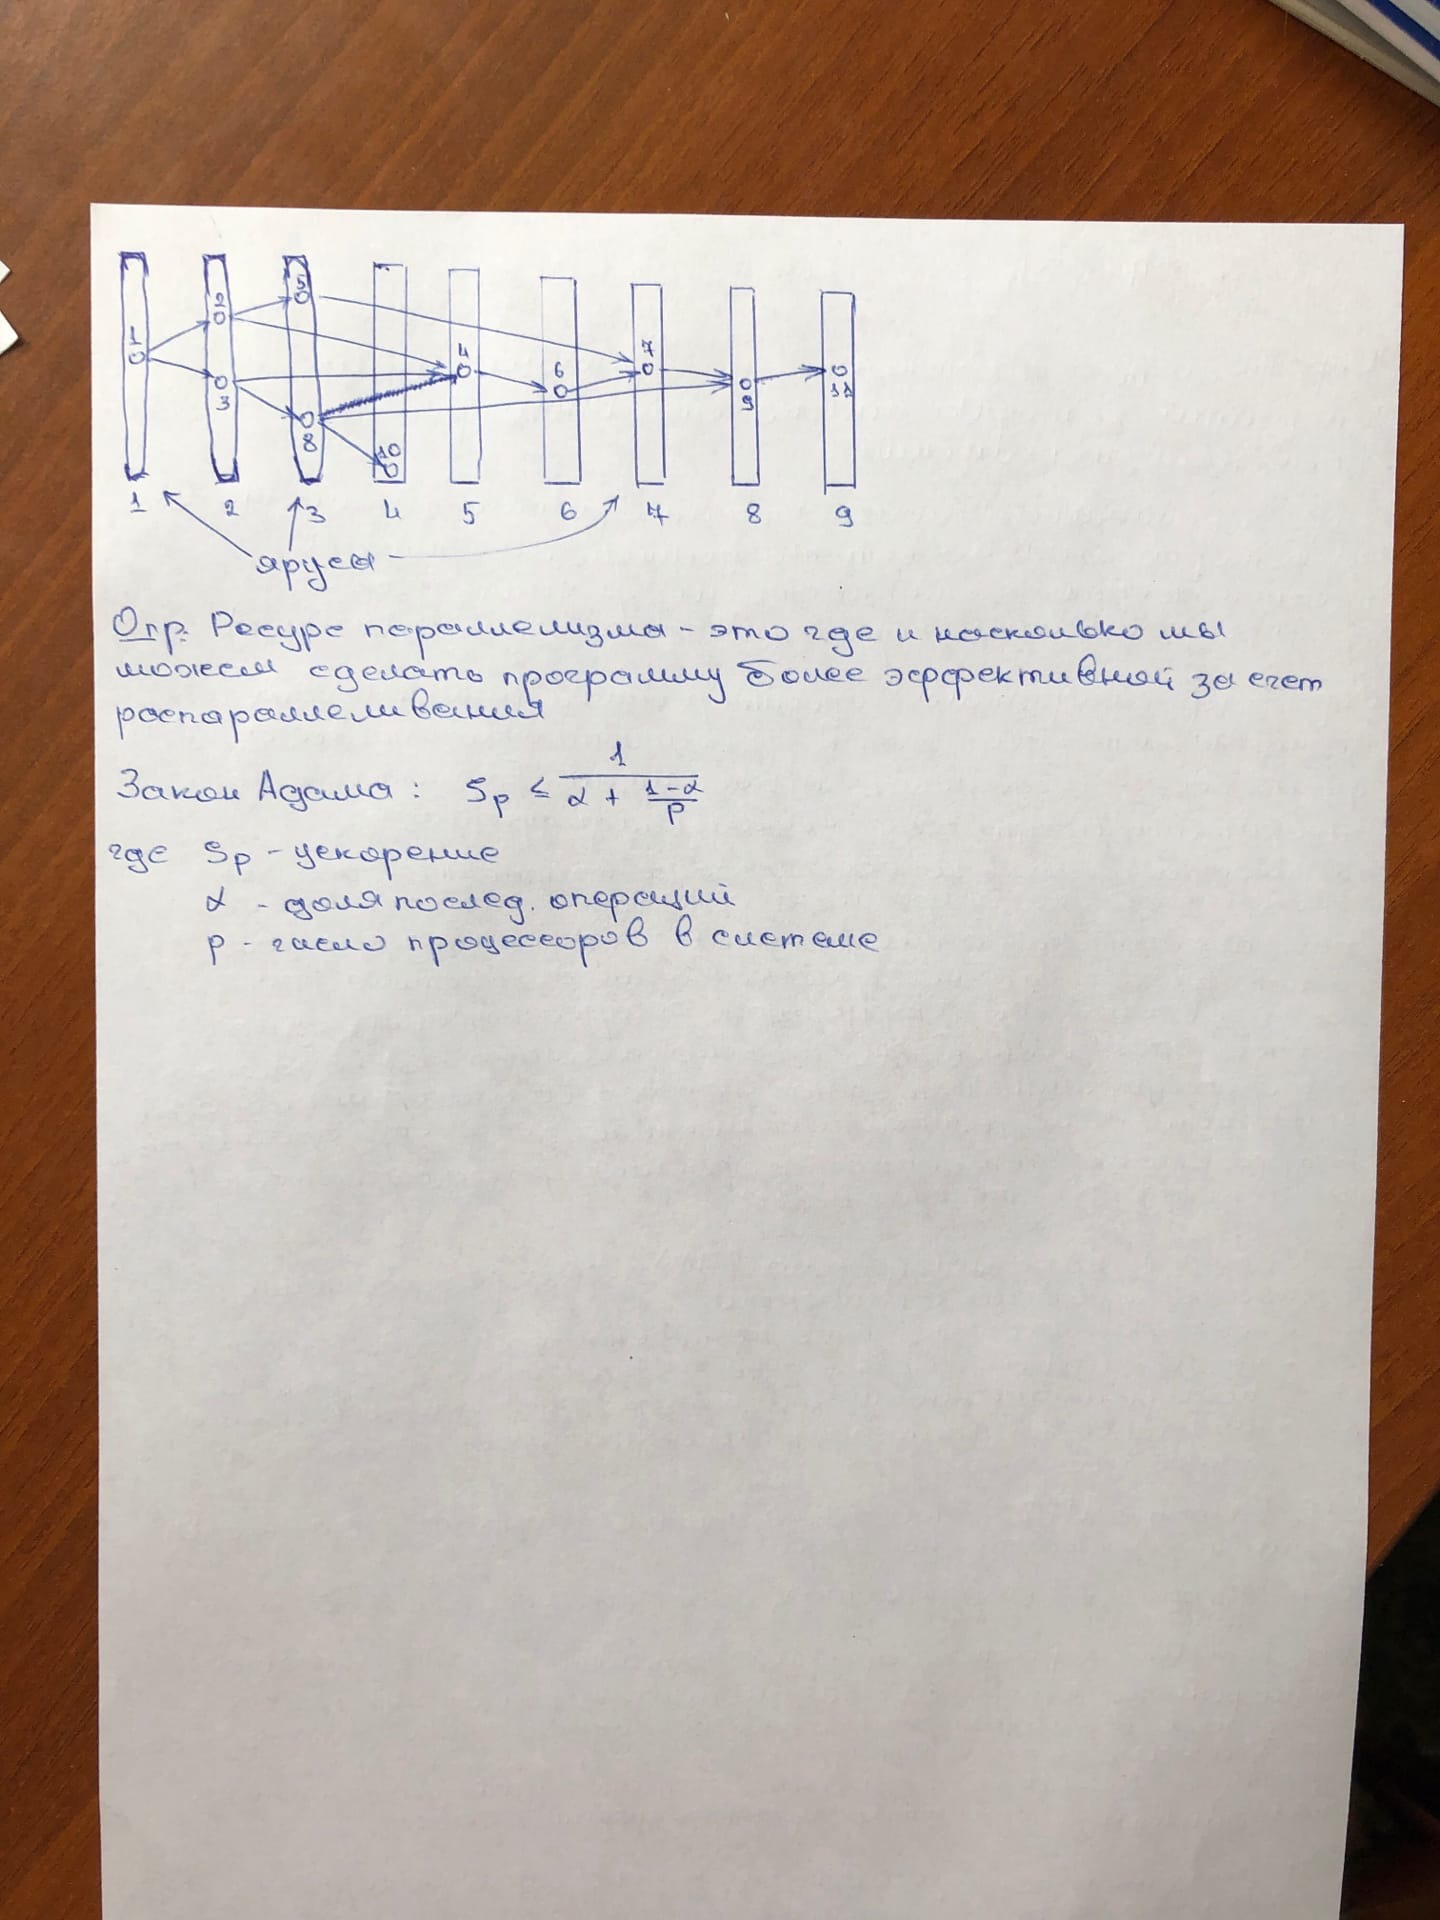 1 2 3 5 8 10 4 6 7 9 11
1 2 3 4 5 6 7 8 9
ярусы
Опр: Ресурс параллелизма - это где и насколько мы
можем сделать программу более эффективной за счет
распараллеливания
Закон Адама: Sp ≤ 1 / (α + (1-α)/p)
где Sp - ускорение
α - доля послед. операций
p - число процессоров в системе